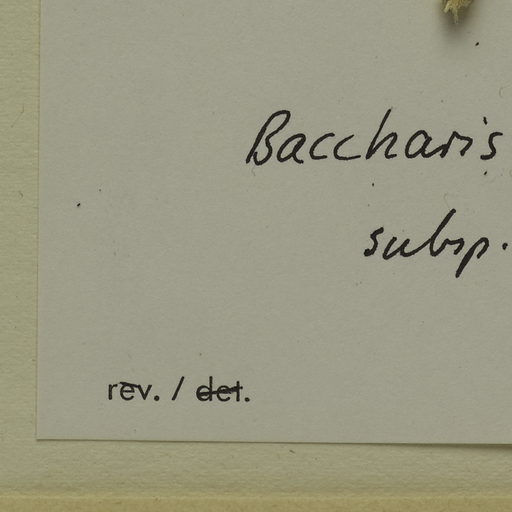 Baccharis
subsp.
rev. / det.